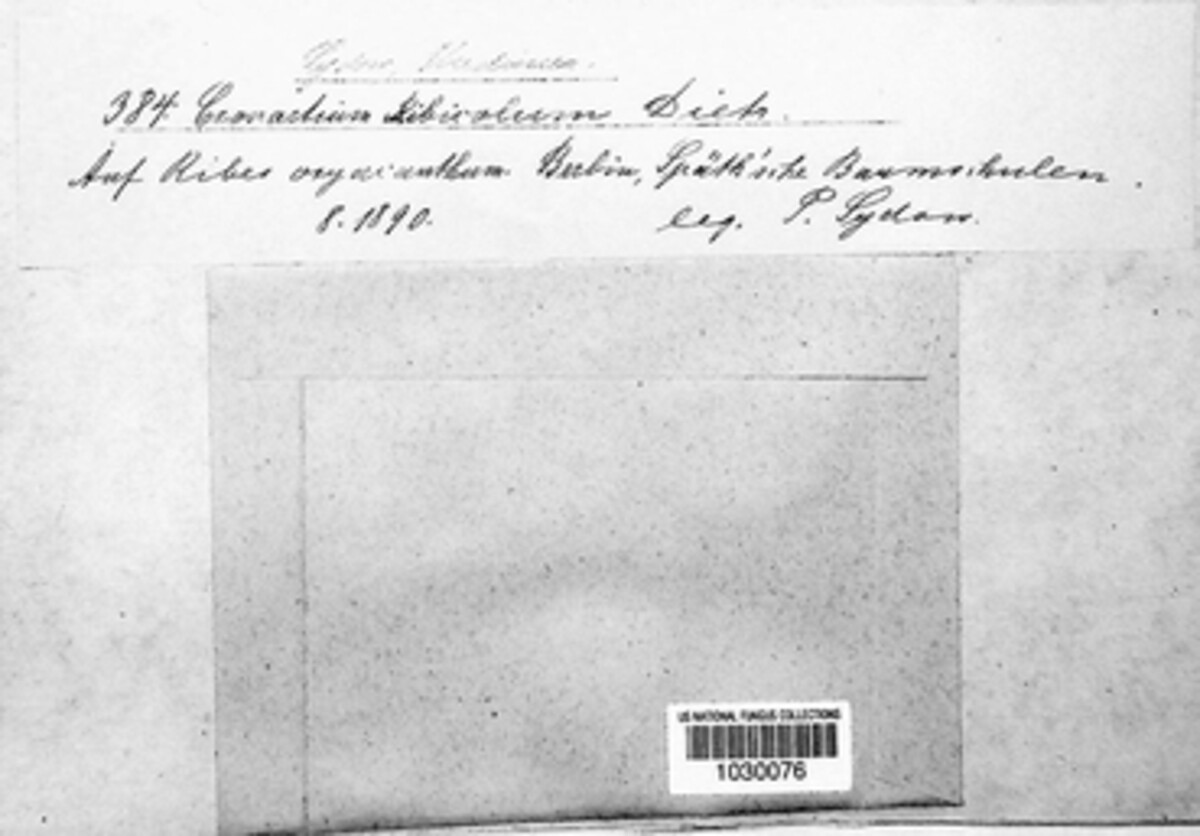 Sydow, Uredineen.
384. Cronartium Ribicolum Diet.
Auf Ribes oxyacanthum Berlin, Späth'sche Baumschulen.
8. 1890. leg. P. Sydow.
US NATIONAL FUNGUS COLLECTIONS
1030076